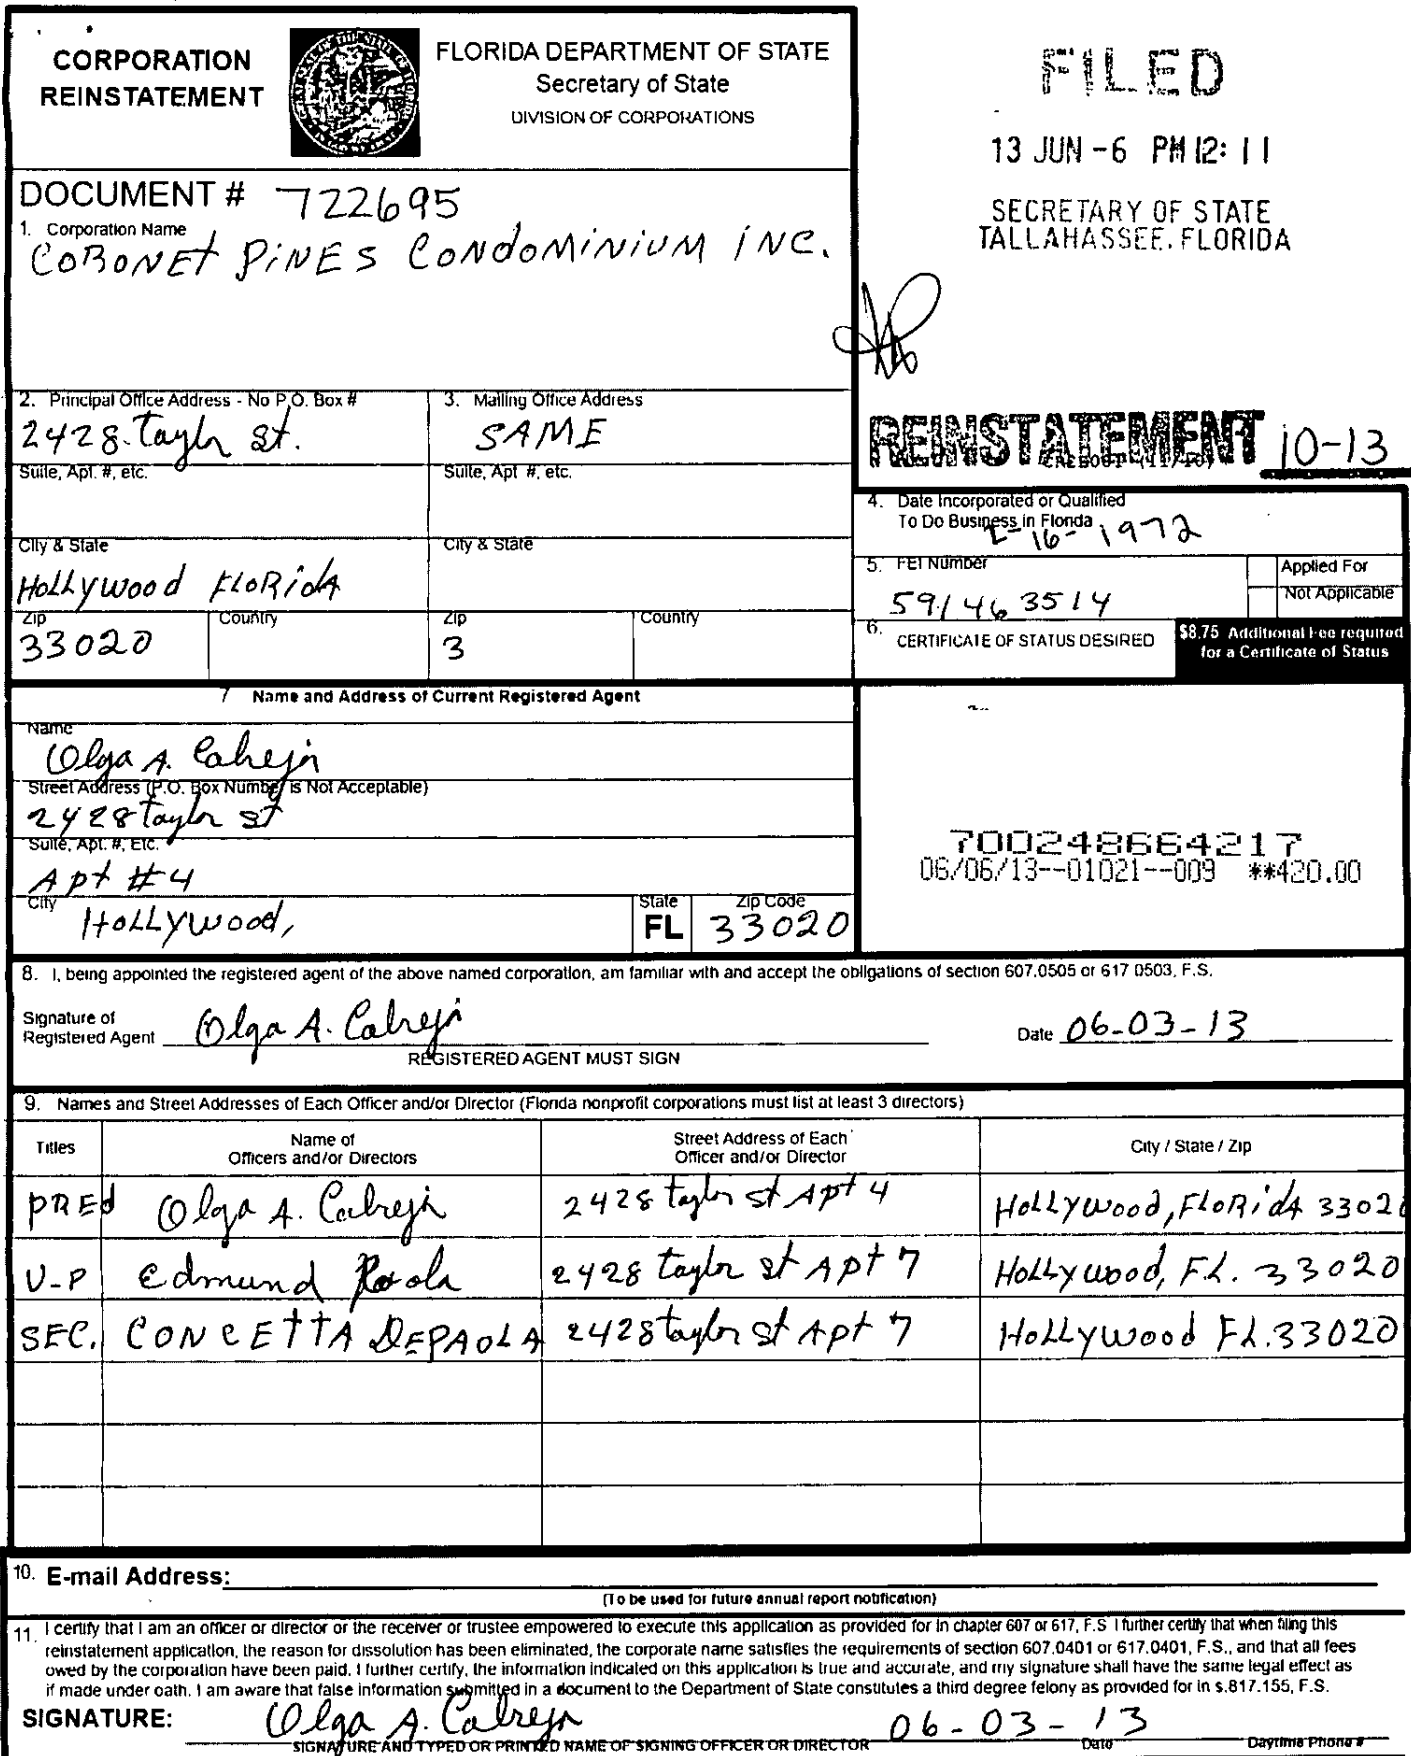 CORPORATION
REINSTATEMENT
FLORIDA DEPARTMENT OF STATE
Secretary of State
DIVISION OF CORPORATIONS
FILED
13 JUN -6 PM 12: 11
SECRETARY OF STATE
TALLAHASSEE, FLORIDA
DOCUMENT # 722695
1. Corporation Name
CORONET PINES CONDOMINIUM INC.
2. Principal Office Address - No P.O. Box #
2428 Taylr st.
3. Mailing Office Address
SAME
Suite, Apt. #, etc.
Suite, Apt #, etc.
City & State
Hollywood FLORIDA
City & State
Zip
33020
Country
Zip
3
Country
REINSTATEMENT 10-13
4. Date Incorporated or Qualified
To Do Business in Florida
2-16-1972
5. FEI Number
591463514
Applied For
Not Applicable
6. CERTIFICATE OF STATUS DESIRED
$8.75 Additional Fee required
for a Certificate of Status
7 Name and Address of Current Registered Agent
Name
Olga A.
Street Address (P.O. Box Number is Not Acceptable)
2428 taylr st
Suite, Apt. #, Etc.
Apt #4
City
Hollywood,
State
FL
Zip Code
33020
700248664217
06/06/13--01021--009 **420.00
8. I, being appointed the registered agent of the above named corporation, am familiar with and accept the obligations of section 607.0505 or 617 0503, F.S.
Signature of
Registered Agent Olga A.
Date 06-03-13
REGISTERED AGENT MUST SIGN
9. Names and Street Addresses of Each Officer and/or Director (Florida nonprofit corporations must list at least 3 directors)
Titles
Name of
Officers and/or Directors
Street Address of Each
Officer and/or Director
City / State / Zip
PRED Olga A. 2428 taylr st Apt 4 Hollywood, FLORIDA 33020
V-P Edmund 2428 taylr st Apt 7 Hollywood, FL. 33020
SEC. CONCETTA DEPAOLA 2428 taylr st Apt 7 Hollywood FL. 33020
10. E-mail Address:
(To be used for future annual report notification)
11. I certify that I am an officer or director or the receiver or trustee empowered to execute this application as provided for in chapter 607 or 617, F.S I further certify that when filing this
reinstatement application, the reason for dissolution has been eliminated, the corporate name satisfies the requirements of section 607.0401 or 617.0401, F.S., and that all fees
owed by the corporation have been paid. I further certify, the information indicated on this application is true and accurate, and my signature shall have the same legal effect as
if made under oath. I am aware that false information submitted in a document to the Department of State constitutes a third degree felony as provided for in s.817.155, F.S.
SIGNATURE: Olga A. 06-03-13
SIGNATURE AND TYPED OR PRINTED NAME OF SIGNING OFFICER OR DIRECTOR Date Daytime Phone #